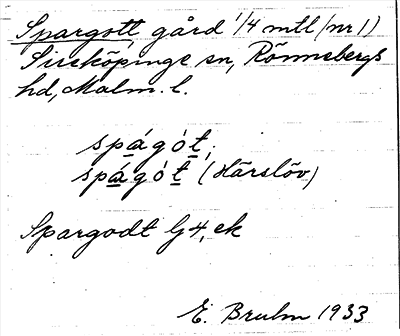 Spargott gård 1/4 mtl (nr 1)
Sireköpinge sn, Rönnebergs
hd, Malm. l.
spágót;
spágót (Härslöv)
Spargodt G 4, ek
E. Bruhn 1933